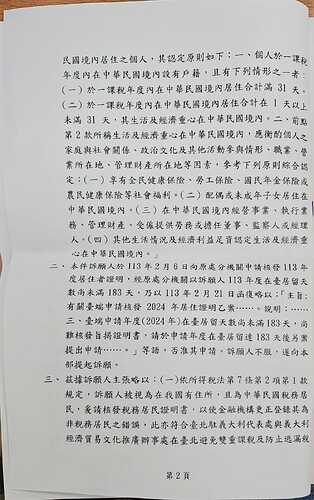 民國境內居住之個人，其認定原則如下：一、個人於一課稅
年度內在中華民國境內設有戶籍，且有下列情形之一者：
(一)於一課稅年度內在中華民國境內居住合計滿 31 天。
(二)於一課稅年度內在中華民國境內居住合計在 1 天以上
未滿 31 天，其生活及經濟重心在中華民國境內。二、前點
第 2 款所稱生活及經濟重心在中華民國境內，應衡酌個人之
家庭與社會關係、政治文化及其他活動參與情形、職業、營
業所在地、管理財產所在地等因素，參考下列原則綜合認
定：(一)享有全民健康保險、勞工保險、國民年金保險或
農民健康保險等社會福利。(二)配偶或未成年子女居住在
中華民國境內。(三)在中華民國境內經營事業、執行業
務、管理財產、受僱提供勞務或擔任董事、監察人或經理
人。(四)其他生活情況及經濟利益足資認定生活及經濟重
心在中華民國境內。」
二、本件訴願人於 113 年 2 月 6 日向原處分機關申請核發 113 年
度居住者證明，經原處分機關以訴願人 113 年度在臺居留天
數尚未滿 183 天，乃以 113 年 2 月 21 日函復略以：「主旨：
有關臺端申請核發 2024 年居住證明乙案……。說明：……
三、臺端申請年度(2024 年)在臺居留天數尚未滿 183 天，尚
難核發旨揭證明書，請於申請年度在臺居留達 183 天後另案
提出申請……。」等語，否准其申請。訴願人不服，遂向本
部提起訴願。
三、茲據訴願人主張略以：(一)依所得稅法第 7 條第 2 項第 1 款
規定，訴願人被視為在我國有住所，且為中華民國稅務居
民，爰請核發稅務居民證明書，以使金融機構更正登錄其為
非稅務居民之錯誤，此亦符合臺北駐義大利代表處與義大利
經濟貿易文化推廣辦事處在臺北避免雙重課稅及防止逃漏稅
第 2 頁